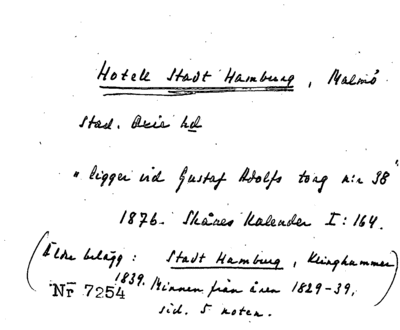 Hotell Stadt Hamburg, Malmö
stad. Oxie hd
"ligger vid Gustaf Adolfs torg n:r 38"
1876. Skånes Kalender I: 164.
(Äldre belägg: Stadt Hamburg, Klinghammer)
1839. Minnen från åren 1829-39,
Nr 7254
sid. 5 noten.